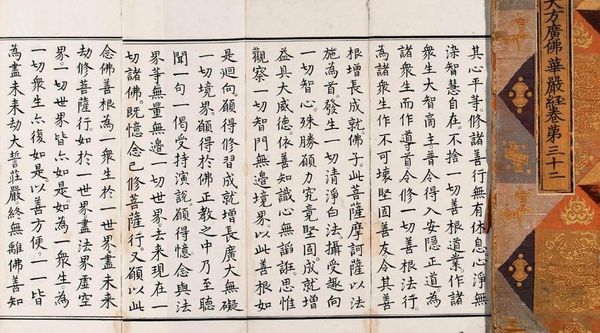 大方廣佛華嚴經卷第三十二
其心平等。修諸善行無有休息。心淨無
染智慧自在。不捨一切善根道業。作諸
衆生大智商主。普令得入安隱正道。為
諸衆生而作導首。令修一切善根法行。
為諸衆生作不可壞堅固善友。令其善
根增長成就。佛子。此菩薩摩訶薩以法
施為首。發生一切清淨白法。攝受趣向
一切智心。殊勝願力究竟堅固。成就增
益具大威德。依善知識心無諂誑。思惟
觀察一切智門無邊境界。以此善根如
是迴向。願得修習成就增長廣大無礙
一切境界。願得於佛正教之中乃至聽
聞一句一偈受持演說。願得憶念與法
界等無量無邊一切世界。去來現在一
切諸佛。既憶念已修菩薩行。又願以此
念佛善根。為一衆生於一世界盡未來
劫修菩薩行。如於一世界盡法界虛空
界一切世界皆亦如是。如為一衆生為
一切衆生亦復如是。以善方便。一一皆
為盡未來劫大誓莊嚴。終無離佛善知